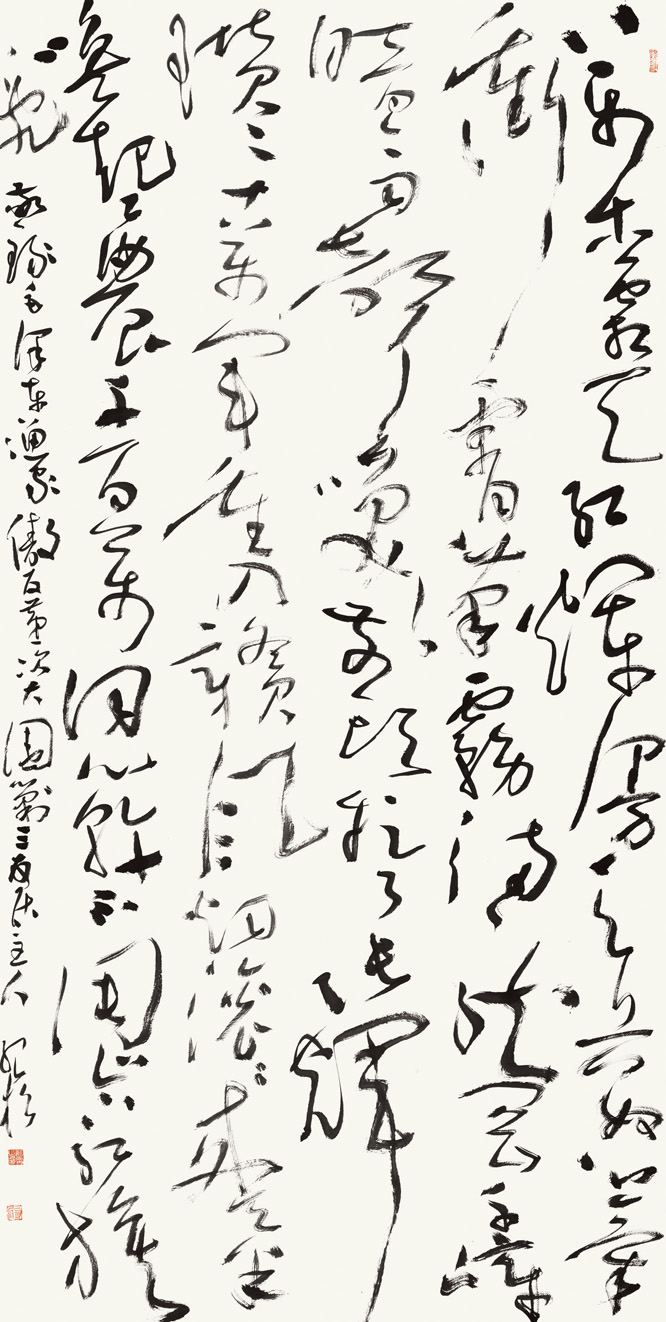 万木霜天红烂漫天兵怒氣
衝霄漢霧满龙冈千嶂
暗齐聲唤前头捉了张辉
瓒二十万军重入赣风烟滚滚来天半
唤起工農千百万同心幹不周山下红旗
乱 敬録毛泽东渔家傲反第一次大围剿 居主人